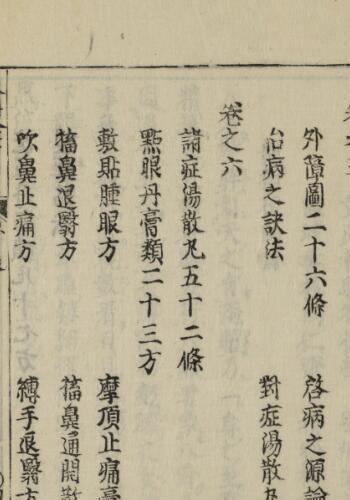 外障圖二十六條 啓病之源論
治病之訣法 對症湯散丸
卷之六
諸症湯散丸五十二條
點眼丹膏類二十三方
敷貼腫眼方 摩頂止痛膏
㗜鼻退翳方 㗜鼻通關散
吹鼻止痛方 縛手退翳方